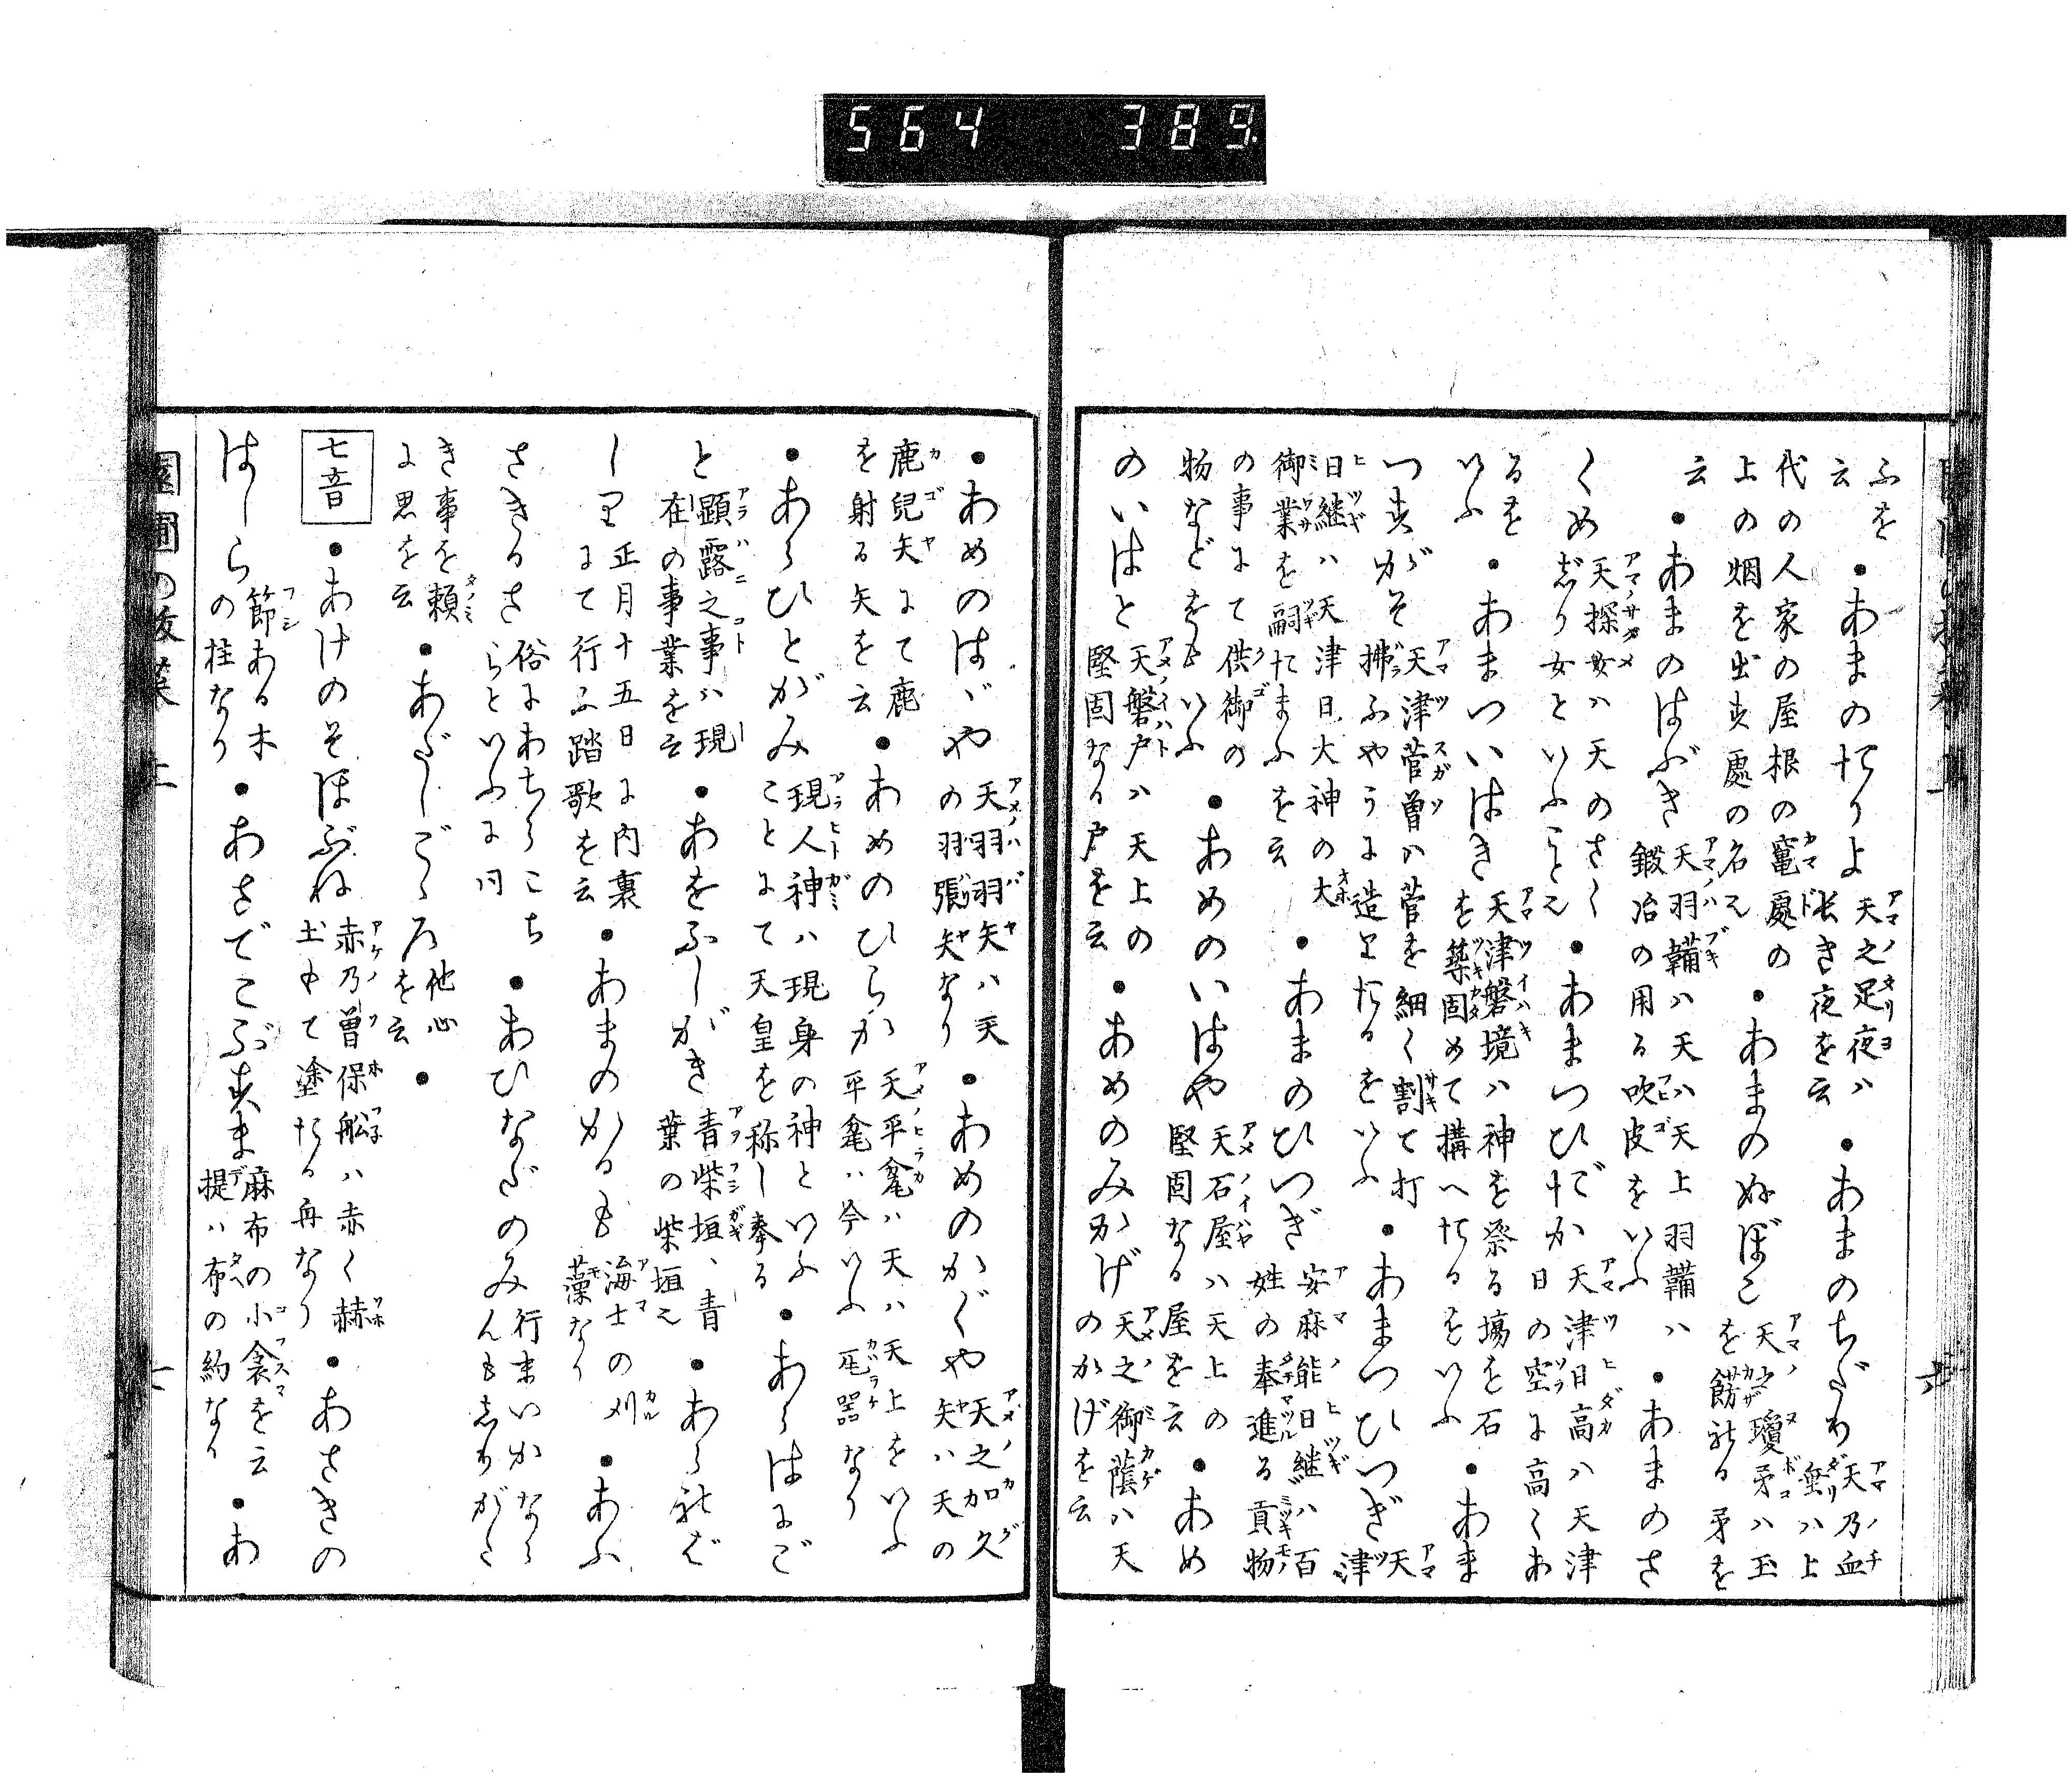 564 389
ふを云 ●あまのたりよ 天之足夜ハ長き夜を云 ●あまのちだり 天乃血垂ハ上
代の人家の屋根の竃處の上の烟を出す處の名え ●あまのぬぼこ 天之瓊矛ハ玉を餝れる矛を
云 ●あまのはぶき 天羽鞴ハ天ハ天上羽鞴ハ鍛冶の用る吹皮をいふ ●あまのさ
くめ 天探女ハ天のさくじり女といふことえ ●あまつひだか 天津日高ハ天津日の空に高くあ
るをいふ ●あまついはき 天津磐境ハ神を祭る場を石を築固めて構へたるをいふ ●あま
つすがそ 天津菅曽ハ菅を細く割て打拂ふやうに造りたるをいふ ●あまつひつぎ 天津
日継ハ天津日大神の大御業を嗣たまふを云 ●あまのひつぎ 安麻能日継ハ百姓の奉進る貢物
の事にて供御の物などをもいふ ●あめのいはや 天石屋ハ天上の堅固なる屋を云 ●あめ
のいはと 天磐戸ハ天上の堅固なる戸を云 ●あめのみかげ 天之御蔭ハ天のかげを云
●あめのはゞや 天羽羽矢ハ天の羽張矢なり ●あめのかぐや 天之加久矢ハ天の
鹿兒矢にて鹿を射る矢を云 ●あめのひらか 天平瓮ハ天ハ天上をいふ平瓮ハ今いふ瓦器なり
●あらひとがみ 現人神ハ現身の神といふことにて天皇を称し奉る ●あらはにご
と 顕露之事ハ現在の事業を云 ●あをふしがき 青柴垣、青葉の柴垣え ●あられば
しり 正月十五日に内裏にて行ふ踏歌を云 ●あまのかるも 海士の刈藻なり ●あふ
さきるさ 俗にあちらこちらといふに同 ●あひなだのみ 行すいかならんも志りがた
き事を頼に思を云 ●あだしごゝろ 他心を云 ●
七音 ●あけのそほぶね 赤乃曽保舩ハ赤く赫土もて塗たる舟なり ●あさきの
はしら 節ある木の柱なり ●あさでこぶすま 麻布の小衾を云提ハ布の約なり ●あ
上